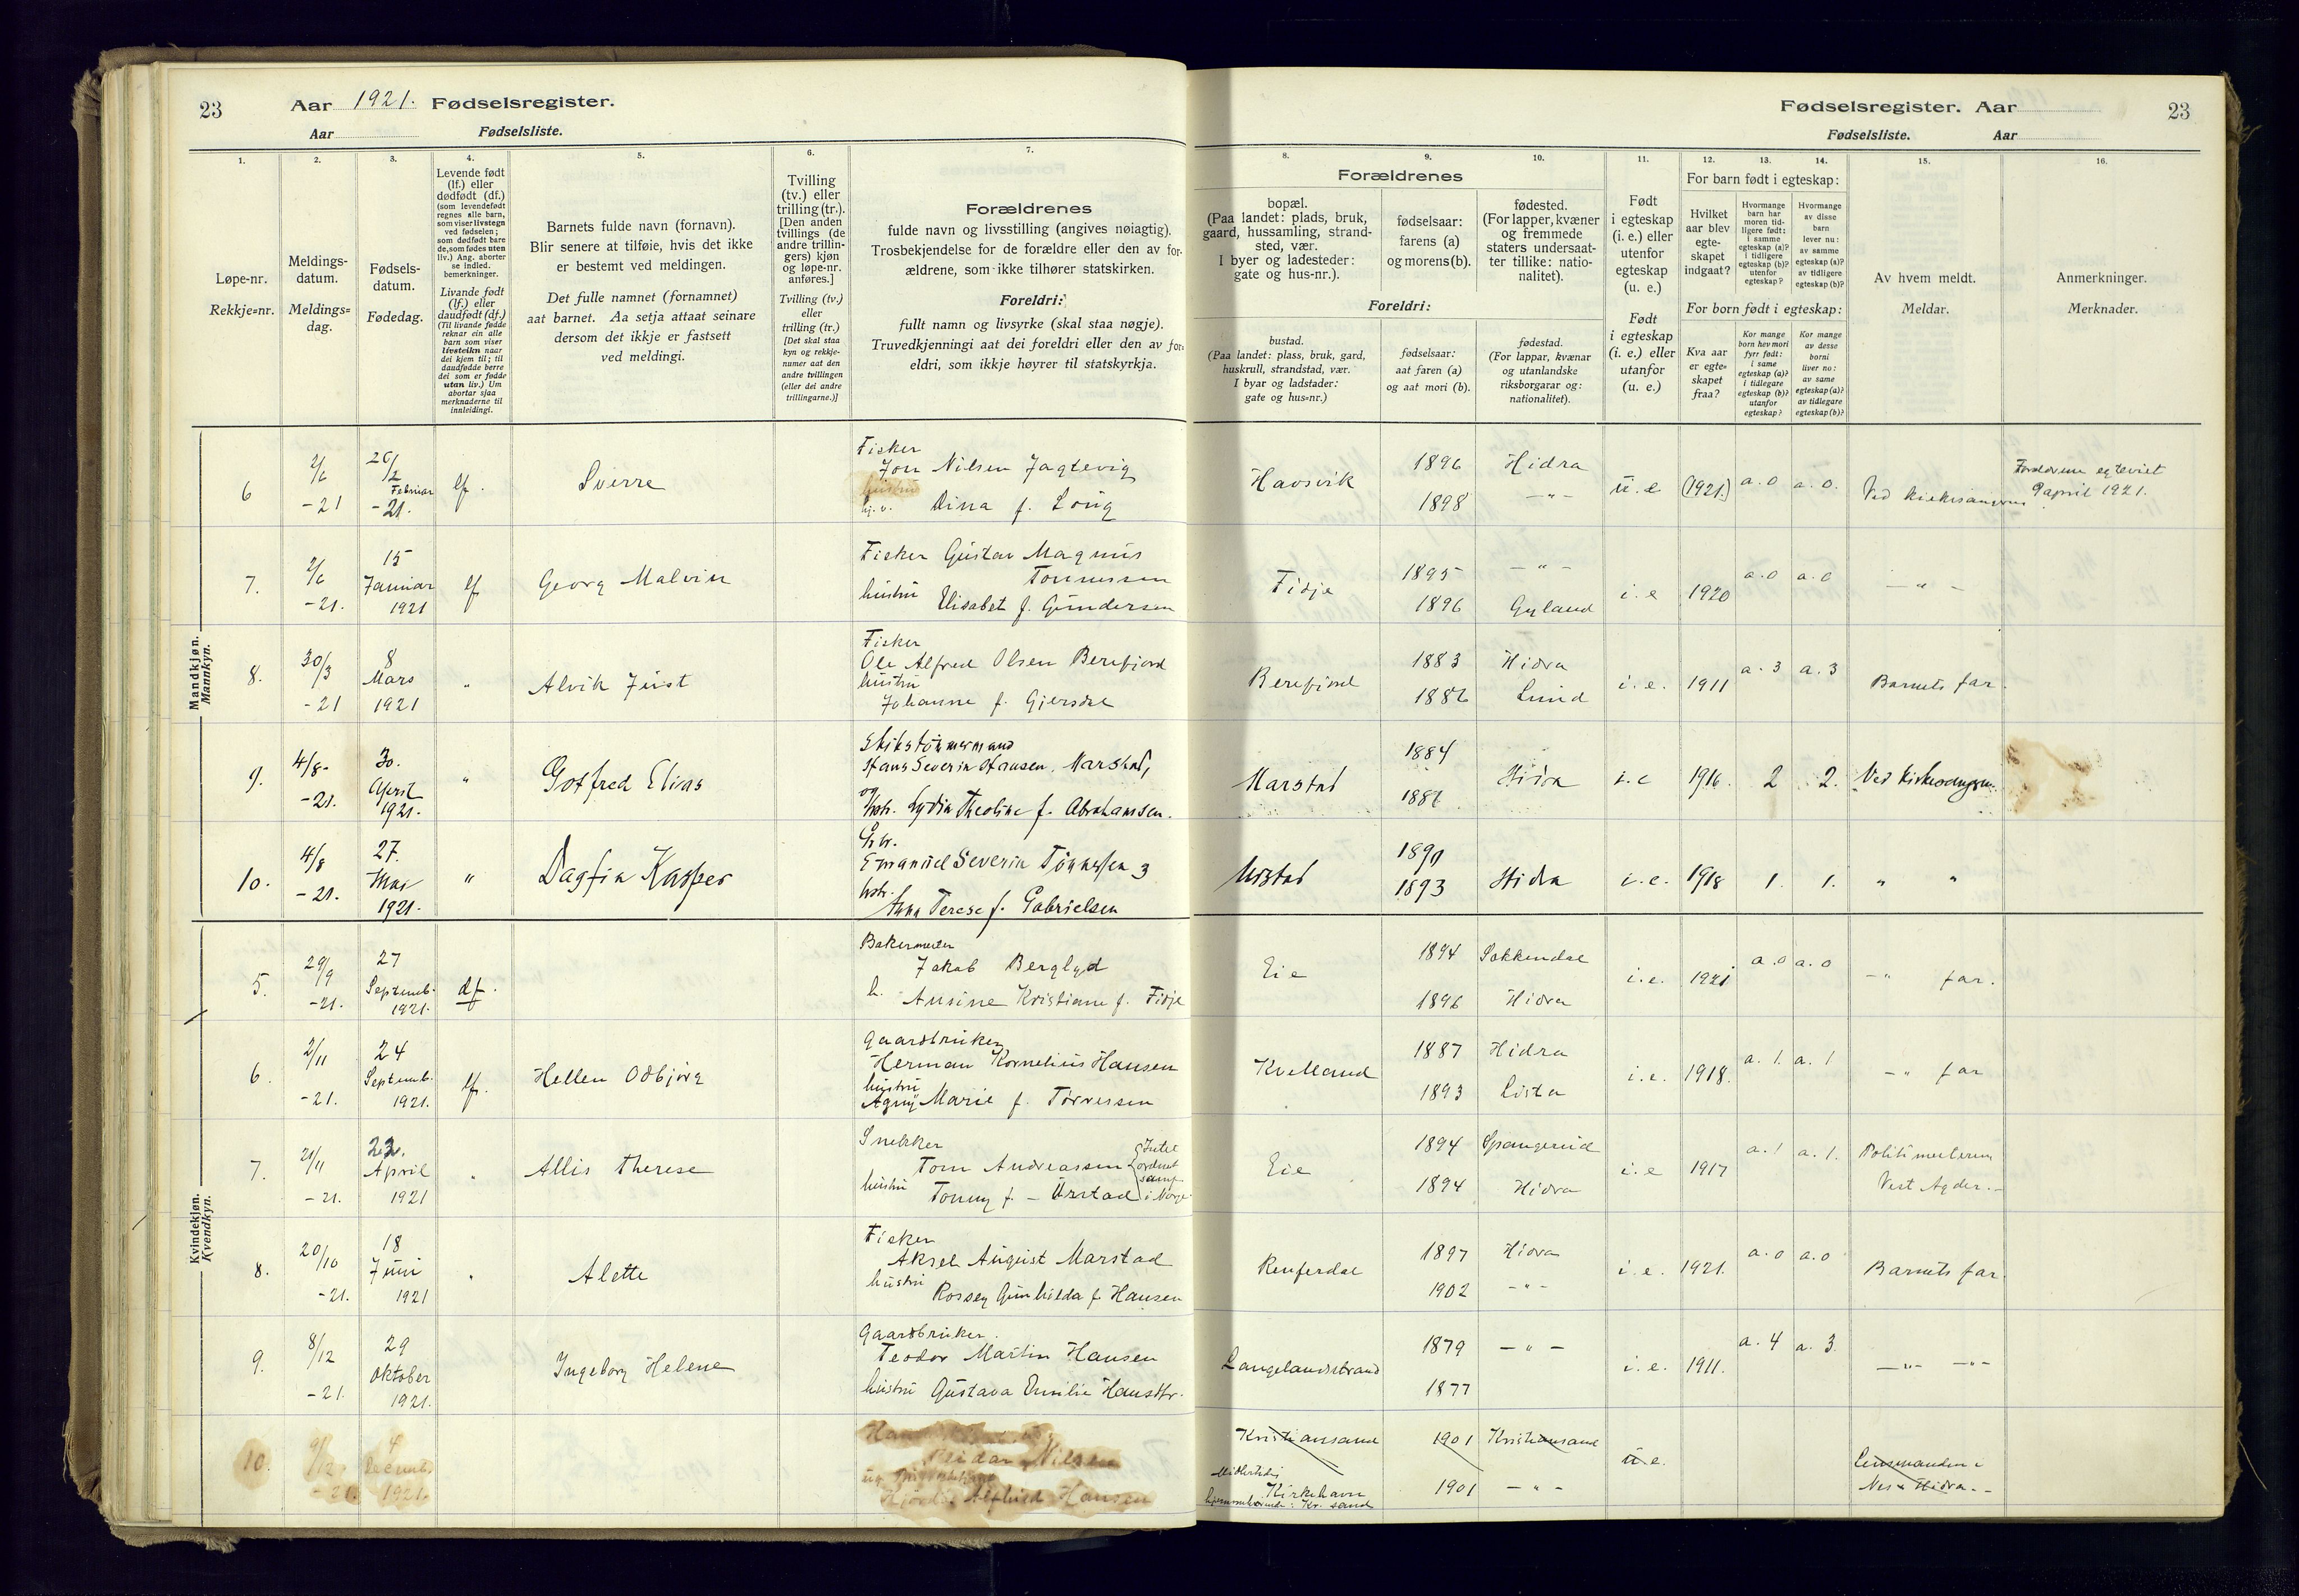 23
Aar 1921. Fødselsregister.
Aar Fødselsliste.
Fødselsregister. Aar
23
Fødselsliste. Aar
1.
Løpe-nr.
Rekkje=nr.
2.
Meldings-
datum.
Meldings=
dag.
3.
Fødsels-
datum.
Fødedag.
4.
Levende født
(lf.) eller
dødfødt (df.)
(som levendefødt
regnes alle barn,
som viser livstegn
ved fødselen;
som dødfødt bare
de, som fødes uten
liv.) Ang. aborter
se indled.
bemerkninger.
Livande født
(lf.) eller
daudfødt (df.)
(Til livande fødde
reknar ein alle
barn som viser
livsteikn naar
dei kjem til; til
daudfødde berre
dei som er fødde
utan liv.) Um
abortar sjaa
merknaderne til
innleidingi.
5.
Barnets fulde navn (fornavn).
Blir senere at tilføie, hvis det ikke
er bestemt ved meldingen.
Det fulle namnet (fornamnet)
aat barnet. Aa setja attaat seinare
dersom det ikkje er fastsett
ved meldingi.
6.
Tvilling
(tv.) eller
trilling (tr.).
[Den anden
tvillings (de
andre trillin-
gers) kjøn
og løpe-nr.
anføres.]
Tvilling (tv.)
eller
trilling (tr.)
[Det skal staa
kyn og rekkje-
numer aat den
andre tvillingen
(eller dei andre
trillingarne.)]
7.
Forældrenes
fulde navn og livsstilling (angives nøiagtig).
Trosbekjendelse for de forældre eller den av for-
ældrene, som ikke tilhører statskirken.
Foreldri:
fullt namn og livsyrke (skal staa nøgje).
Truvedkjenningi aat dei foreldri eller den av for-
eldri, som ikkje høyrer til statskyrkja.
Forældrenes
8.
bopæl.
(Paa landet: plads, bruk,
gaard, hussamling, strand-
sted, vær.
I byer og ladesteder:
gate og hus-nr.).
9.
fødselsaar:
farens (a)
og morens (b).
10.
fødested.
(For lapper, kvæner
og fremmede
staters undersaat-
ter tillike: natio-
nalitet).
Foreldri:
bustad.
(Paa landet: plass, bruk, gard,
huskrull, strandstad, vær.
I byar og ladstader:
gate og hus=nr.)
fødselsaar:
aat faren (a)
og aat mori (b).
fødestad.
(For lappar, kvænar
og utanlandske
riksborgarar og:
nationalitet).
11.
Født
i egteskap
(i. e.) eller
utenfor
egteskap
(u. e.)
Født
i egteskap
(i. e.) eller
utanfor
(u. e.)
12. 13. 14.
For barn født i egteskap:
Hvilket
aar blev
egte-
skapet
indgaat?
Hvormange
barn har
moren tid-
ligere født:
i samme
egteskap (a)?
i tidligere
egteskap (b)?
utenfor
egteskap?
Hvormange
av disse
barn
lever nu:
av samme
egteskap (a)?
av tidligere
egteskap (b)?
For born født i egteskap:
Kva aar
er egte-
skapet
fraa?
Kor mange
born hev mori
fyrr født:
i same
egteskap (a)?
i tidlegare
egteskap (b)?
utanfor
egteskap?
Kor mange
av desse
borni
liver no:
av same
egteskap (a)?
av tidlegare
egteskap (b)?
15.
Av hvem meldt.
Meldar.
16.
Anmerkninger.
Merknader.
Mandkjøn.
Mannkyn.
6 2/6 -21 26/2 Februar -21. lf. Sverre
Fisker
Jon Nilsen Jagtevig
hustru
Dina f. Loug
Havsvik 1896 Hidra
1898 -"-
u. e (1921.) a.0 a.0. Ved kirkesangeren
Forældrene egteviet
9 april 1921.
7. 2/6 -21. 15 Januar 1921 lf Georg Malvin
Fisker Gustav Magnus
Tønnessen
hustru Elisabet f. Gundersen
Fidje 1895 -"-
1896 Gyland
i. e 1920 a.0 a.0 -"-
8. 30/3 -21 8 Mars 1921 " Alvik Just
Fisker
Ole Alfred Olsen Berefjord
hustru
Johanne f. Gjersdal
Berefjord 1883 Hidra
1886 Lund
i. e. 1911 a. 3 a. 3 Barnets far.
9. 4/8- -21. 30. April 1921. " Gotfred Elias
Skibstømmermand
Hans Severin Hansen, Marstad,
og
hstr. Lydia Theoline f. Abrahamsen.
Marstad 1884
1886 Hidra i. e 1916. 2 2. Ved kirkesangeren.
10. 4/8 -21. 27. Mai 1921. " Dagfin Kasper
Gbr.
Emanuel Severin Tønnessen
hstr.
Anna Terese f. Gabrielsen
Urstad 1890
1893 Hidra i. e. 1918 1. 1. " "
Kvindekjøn.
Kvendkyn.
5. 29/9 -21. 27 Septemb. 1921. df.
Bakermester
Jakob Berglyd
h. Ansine Kristiane f. Fidje
Eie 1894 Sokkendal
1896 Hidra
i. e. 1921 a.0 a.0 -" far.
6. 2/11 -21. 24 Septemb. 1921. lf. Hellen Odbjørg
Gaardbruker
Herman Kornelius Hansen
hustru
Agny Marie f. Torressen
Kvelland 1887 Hidra
1893 Lista
i. e. 1918. a. 1. a. 1 -" far
7. 21/11 -21. 22. April 1921 " Allis Therese
Snekker
Tom Andreassen
hustru Tonny f - Urstad
Intet
ordnet
samf.
i Norge
Eie 1894 Spangereid
1894 Hidra
i. e 1917 a. 1 a. 1. Politimesteren
Vest Agder.-
8. 20/10 -21. 18 Juni 1921 " Alette
Fisker
Aksel August Marstad
hustru
Rossey Gunhilda f. Hansen
Renferdal 1897 Hidra
1902 -"-
i. e. 1921. a.0 a.0 Barnets far.
9. 8/12 -21. 29 Oktober 1921. Ingeborg Helene
Gaardbruker.
Teodor Martin Hansen
hustru Gustava Emilie Hansdtr.
Langelandsstrand 1879 -"-
1877
i. e. 1911. a. 4 a. 3. -"- -"-
10. 9/12 -21. 4 Decemb. 1921.
Reidar Nilsen
Hjørdis Alfhild Hansen
Kristiansand 1901 Kristiansand
Midlertidig
Kirkehavn 1901 -"-
hjemmehørende: Kr. sand
u. e.
Lensmanden i
Nes & Hidra.-